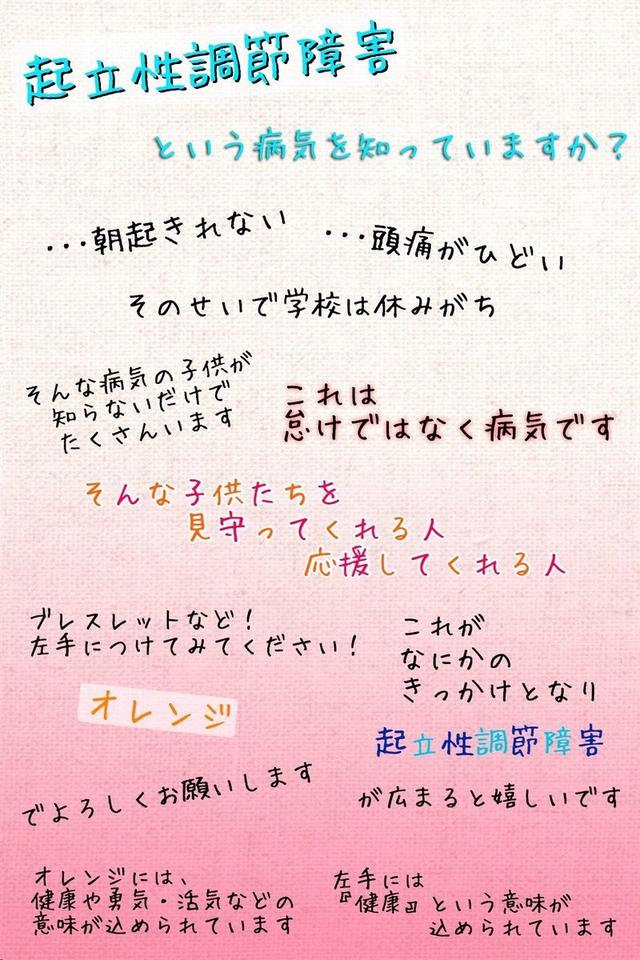 起立性調節障害
という病気を知っていますか？
...朝起きれない
...頭痛がひどい
そのせいで学校は休みがち
そんな病気の子供が
知らないだけで
たくさんいます
これは
怠けではなく病気です
そんな子供たちを
見守ってくれる人
応援してくれる人
ブレスレットなど！
左手につけてみてください！
オレンジ
でよろしくお願いします
これが
なにかの
きっかけとなり
起立性調節障害
が広まると嬉しいです
オレンジには、
健康や勇気・活気などの
意味が込められています
左手には
『健康』という意味が
込められています